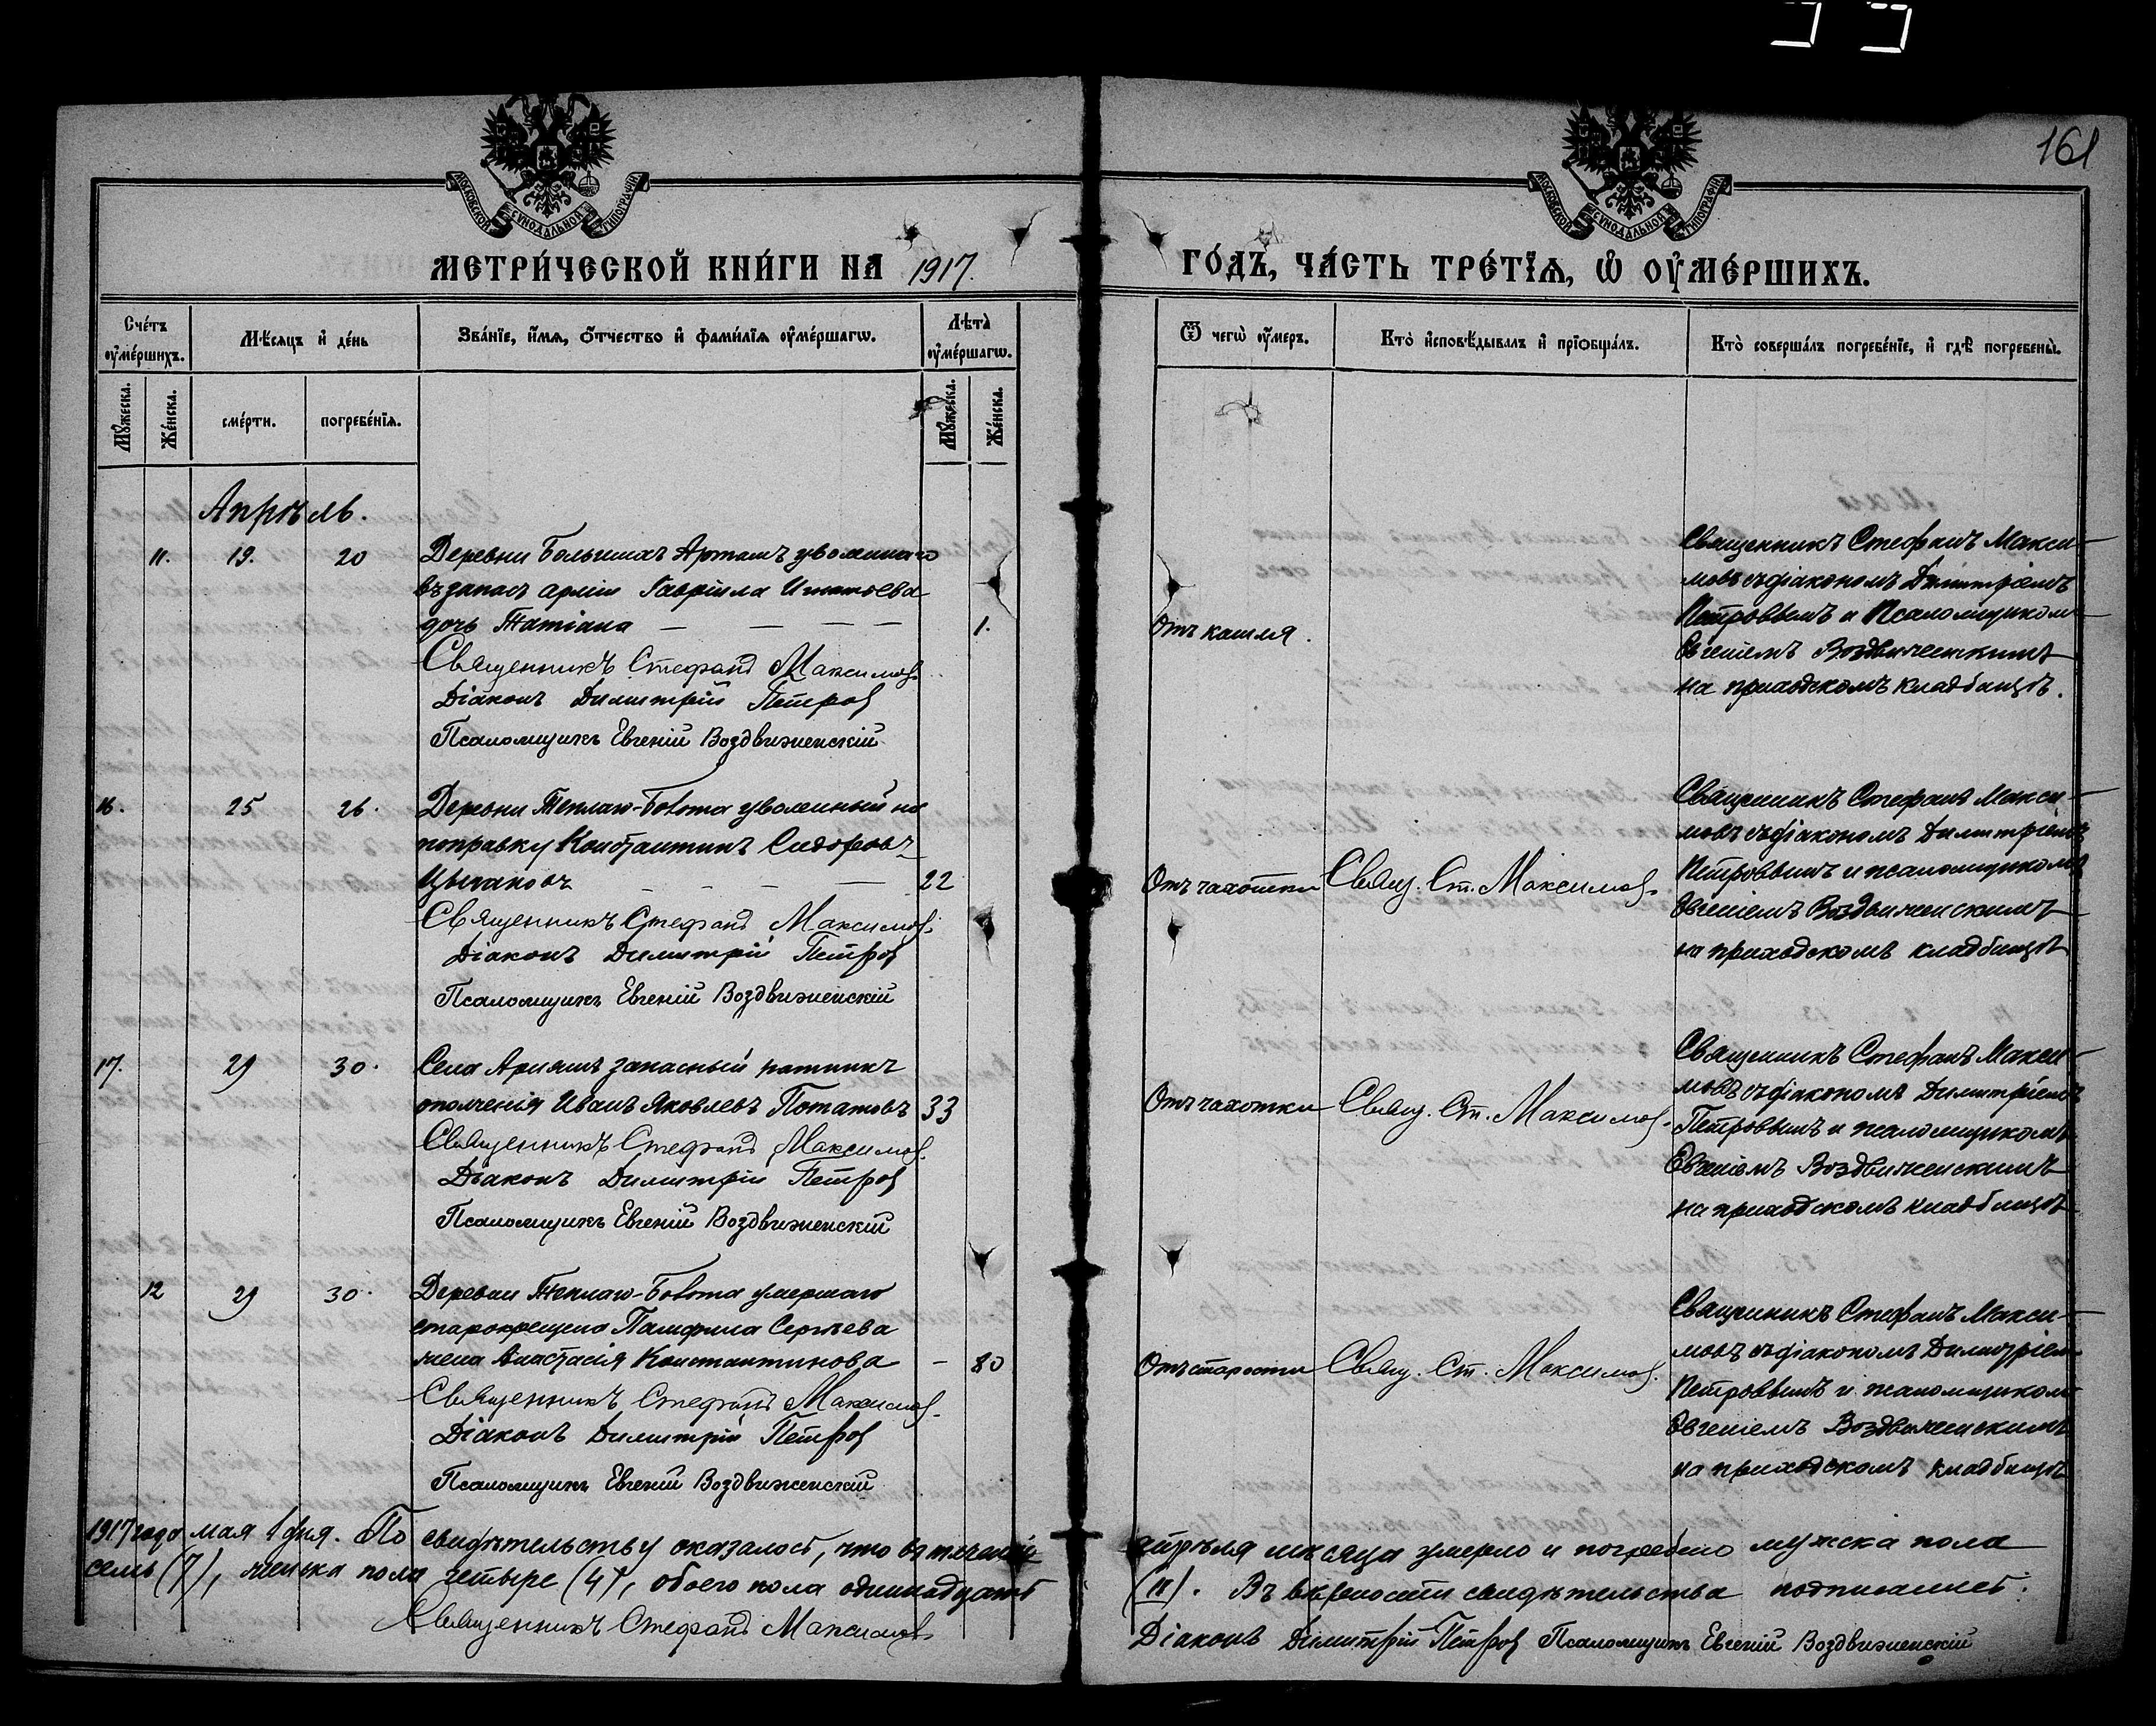 161
МОСКОВСКОЙ СѴНОДАЛЬНОЙ ТИПОГРАФІИ
МОСКОВСКОЙ СѴНОДАЛЬНОЙ ТИПОГРАФІИ
МЕТРИ́ЧЕСКОЙ КНИ́ГИ НА 1917. ГО́ДЪ, ЧА́СТЬ ТРЕ́ТЇѦ, Ѡ҆ ОУ҆МЕ́РШИХЪ.
Сче́тъ оу҆ме́ршихъ.
Мѣ́сяцъ и҆ де́нь
Зва́нїе, и҆́мѧ, ѻ҆́тчество и҆ фами́лїѧ оу҆ме́ршагѡ.
Лѣ́та оу҆ме́ршагѡ.
Ѿ чегѡ̀ оу҆́меръ.
Кто̀ и҆сповѣ́дывалъ и҆ прїѡбща́лъ.
Кто̀ соверша́лъ погребе́нїе, и҆ гдѣ̀ погребены̀.
Мꙋ́жеска.
Же́нска.
сме́рти.
погребе́нїѧ.
Мꙋ́жеска.
Же́нска.
Апрѣль.
11. 19. 20 Деревни Большихъ уволеннаго
въ запасъ арміи Гавріила Игнатьева
дочь Татіана — — — — 1.
Священникъ Стефанъ Максимов.
Діаконъ Димитрій Петров
Псаломщикъ Евгеній Воздвиженскій
Отъ кашля.
Священникъ Стефанъ Макси-
мовъ съ діакономъ Димитріемъ
Петровымъ и Псаломщиком
Евгеніемъ Воздвиженскимъ
на приходскомъ кладбищѣ.
16. 25 26. Деревни уволенный на
поправку Константинъ Сидоровъ
Цыгановъ — — — — 22
Священникъ Стефанъ Максимов.
Діаконъ Димитрій Петров
Псаломщикъ Евгеній Воздвиженскій
Отъ чахотки Свящ. Ст. Максимов.
Священникъ Стефанъ Макси-
мовъ съ діакономъ Димитріемъ
Петровымъ и псаломщикомъ
Евгеніемъ Воздвиженскимъ
на приходскомъ кладбищѣ
17. 29 30. Села запасный ратникъ
ополченія Иванъ Яковлевъ 33
Священникъ Стефанъ Максимов.
Діаконъ Димитрій Петров
Псаломщикъ Евгеній Воздвиженскій
Отъ чахотки Свящ. Ст. Максимов.
Священникъ Стефанъ Макси-
мовъ съ діакономъ Димитріемъ
Петровымъ и псаломщикомъ
Евгеніемъ Воздвиженскимъ
на приходскомъ кладбищѣ
12 29 30. Деревни умершаго
старокрещена Памфила Сергѣева
жена Анастасія Константинова — 80
Священникъ Стефанъ Максимов.
Діаконъ Димитрій Петров
Псаломщикъ Евгеній Воздвиженскій
Отъ старости Свящ. Ст. Максимов.
Священникъ Стефанъ Макси-
мовъ съ діакономъ Димитріем
Петровымъ и псаломщиком
Евгеніемъ Воздвиженскимъ
на приходскомъ кладбищѣ
1917 года мая 1 дня. По свидѣтельству оказалось, что въ теченіи апрѣля мѣсяца умерло и погребено мужска пола
семь (7), женска пола четыре (4), обоего пола одиннадцать (11). Въ вѣрности свидѣтельства подписались:
Священникъ Стефанъ Максимов Діаконъ Димитрій Петров Псаломщикъ Евгеній Воздвиженскій